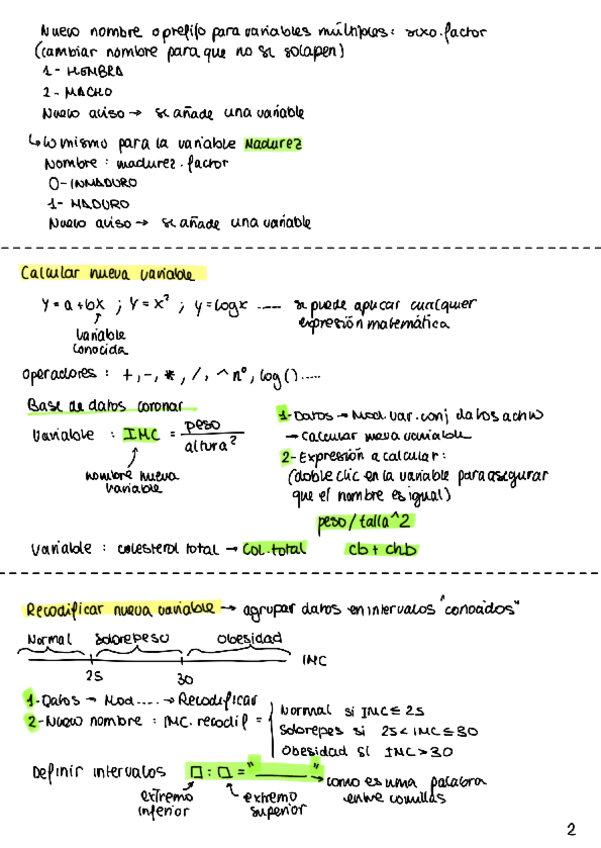 Nuevo nombre o prefijo para variables múltiples: sexo.factor
(cambiar nombre para que no se solapen)
1- HEMBRA
2- MACHO
Nuevo aviso → se añade una variable
↳ Lo mismo para la variable Madurez
Nombre : madurez.factor
0- INMADURO
1- MADURO
Nuevo aviso → se añade una variable
Calcular nueva variable
Y = a + bx ; Y = x² ; y = log x ---- se puede aplicar cualquier
expresión matemática
variable
conocida
operadores : +, -, *, /, ^ nº, log () .....
Base de datos coronar
Variable : IMC = peso / altura²
nombre nueva
variable
1- Datos → Mod. var. conj datos activo
→ Calcular nueva variable
2- Expresión a calcular :
(doble clic en la variable para asegurar
que el nombre es igual)
peso/talla^2
Variable : colesterol total → Col.total cb + chb
Recodificar nueva variable → agrupar datos en intervalos "conocidos"
Normal Sobrepeso Obesidad
25 30 IMC
1- Datos → Mod.... → Recodificar
2- Nuevo nombre : IMC.recodif =
Normal si IMC ≤ 25
Sobrepes si 25 < IMC ≤ 30
Obesidad si IMC > 30
Definir intervalos □ : □ = "______" → como es una palabra
entre comillas
extremo
inferior
extremo
superior
2